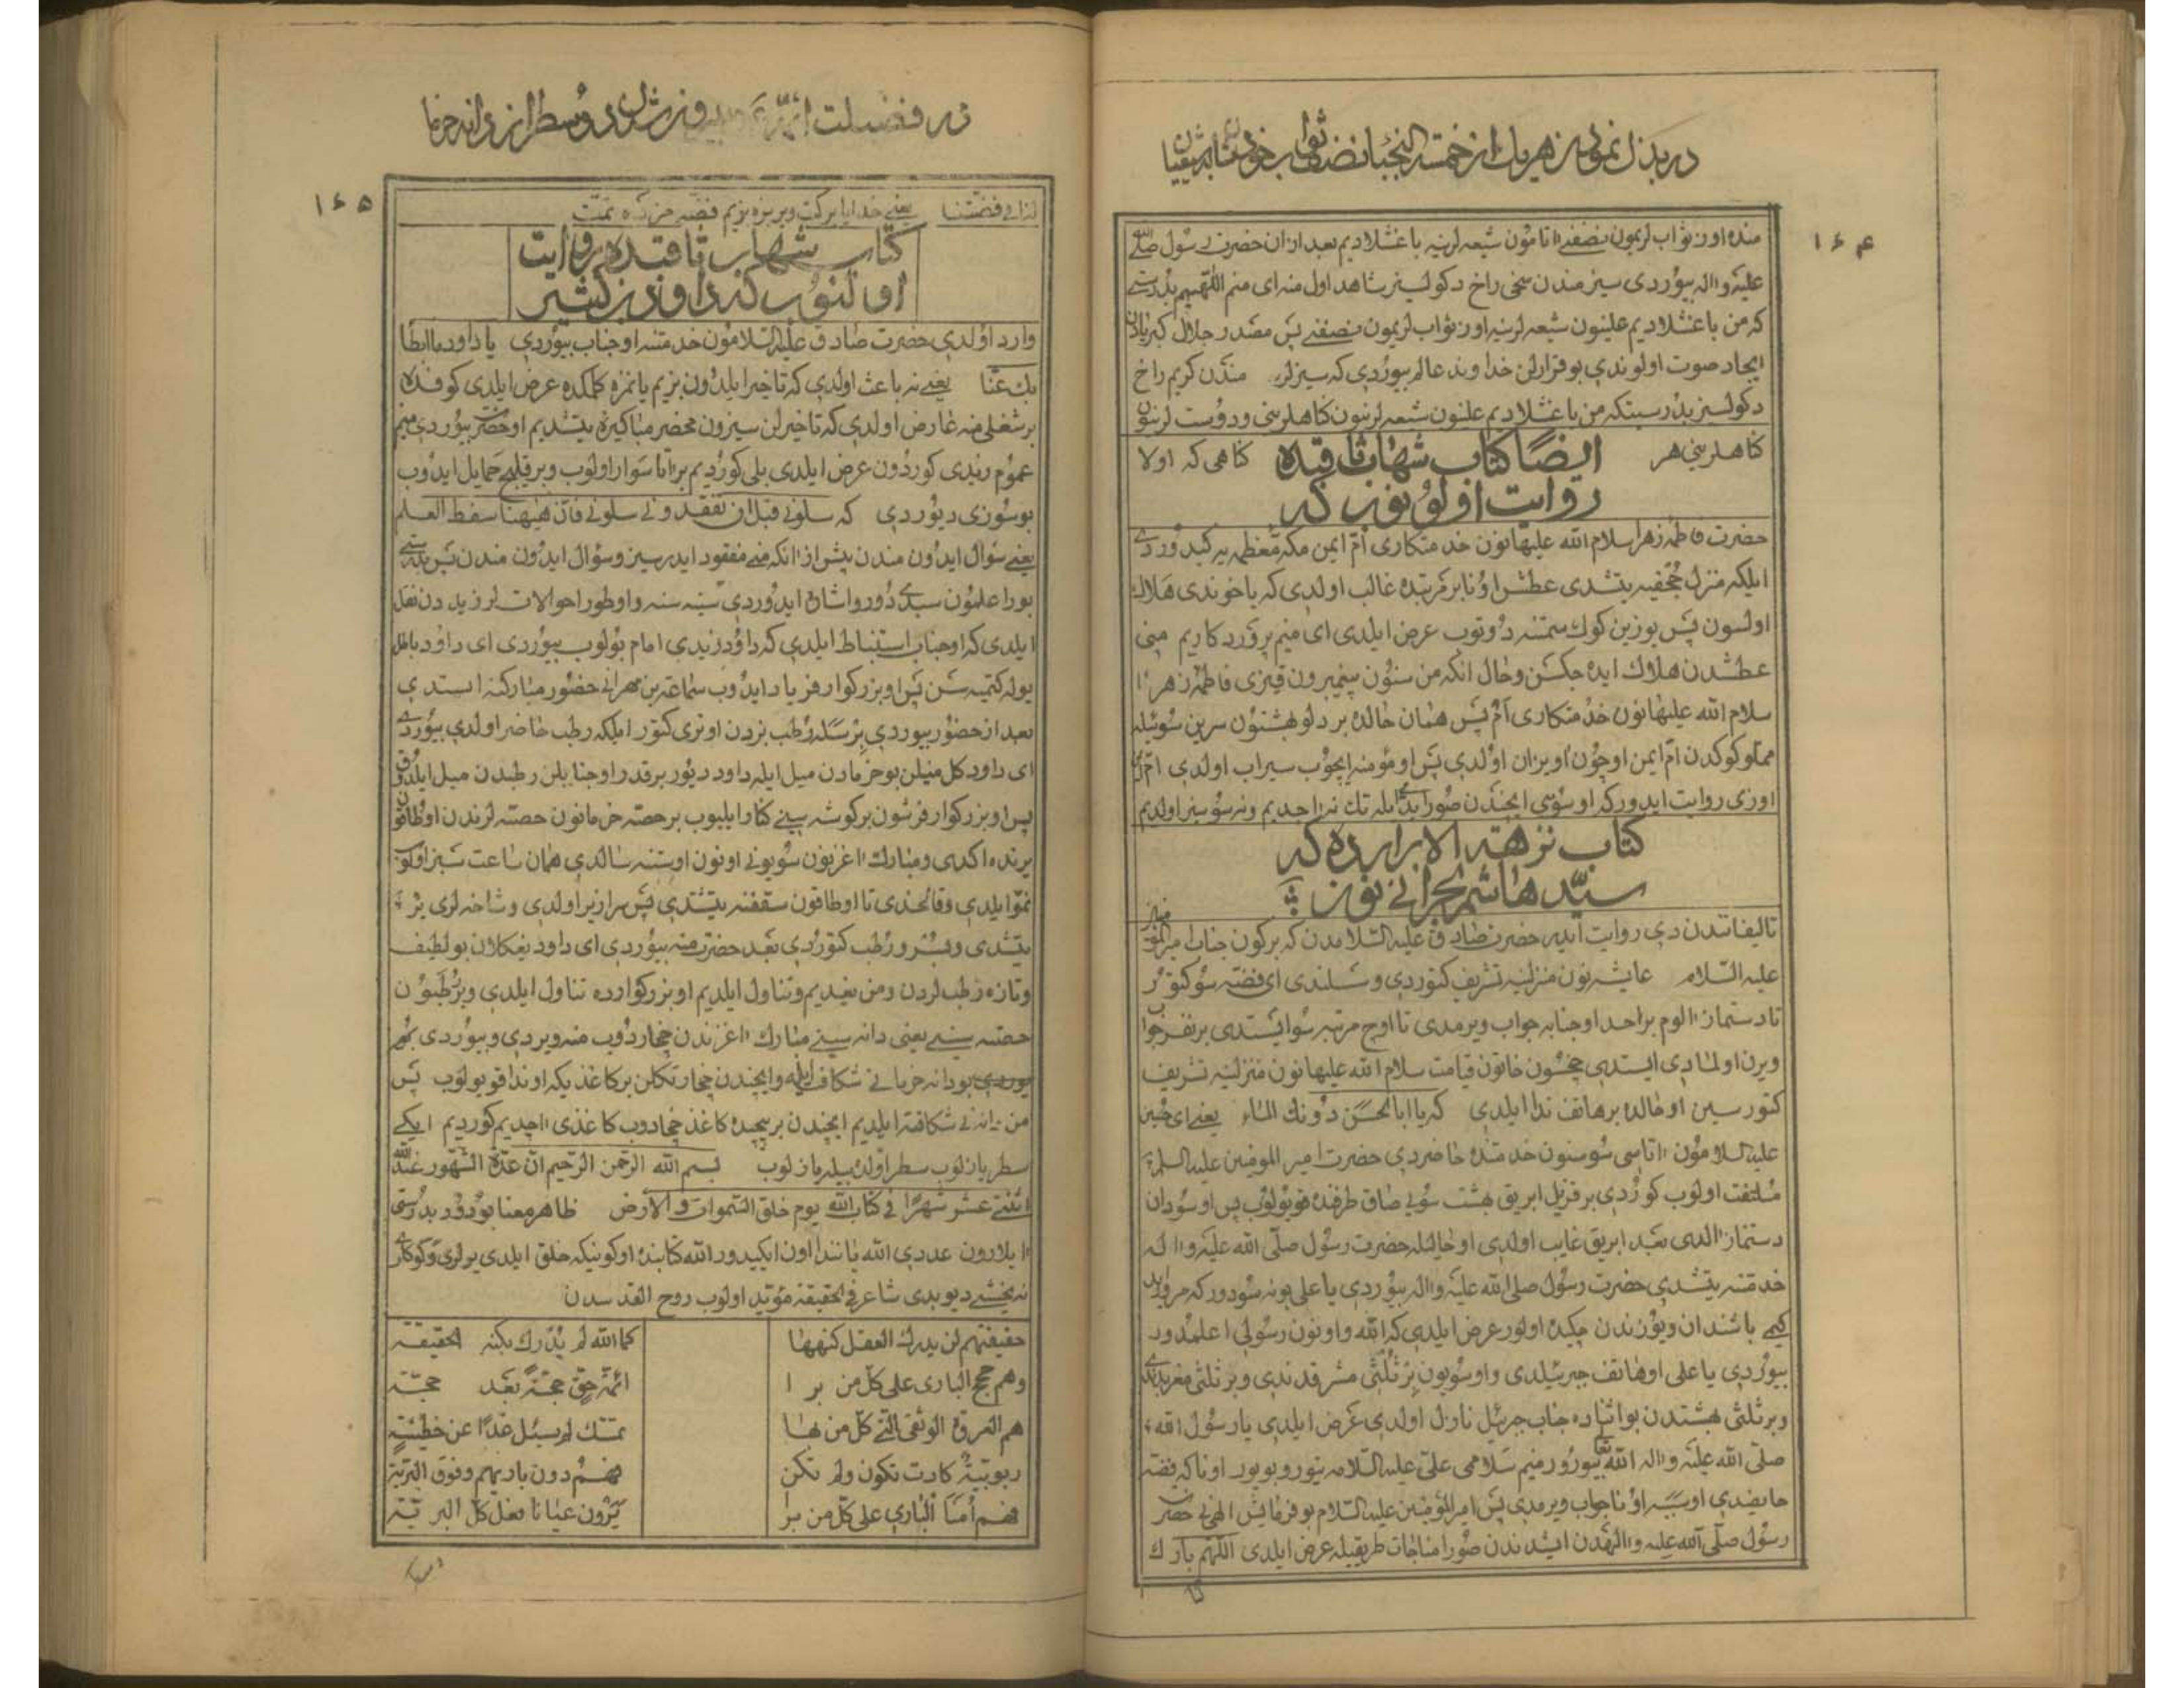 در بذل نمودن هر یک از خمسة النجبا نصف ثواب خود را بشیعیان
۱۶۴
منده اوز ثواب لریمون نصفنی آتامون شیعه لرینه باغشلادیم بعد ازان حضرت رسول صلی الله
علیه واله بیوردی سیز مندن سخی راخ دکولسیز شاهد اول منه ای منیم اللهیم بدرستی
که من باغشلادیم علینون شیعه لرینه اوز ثواب لریمون نصفنی پس مصدر جلال کبریادن
ایجاد صوت اولوندی بو قرارلن خداوند عالم بیوردی که سیزلر مندن کریم راخ
دکولسیز بدرستیکه من باغشلادیم علنون شیعه لرینون کناهلرینی ودوست لرینون
کناهلرینی هر کناهی که اولا
ایضا کتاب شهاب ثاقبده
روایت اولونوب که
حضرت فاطمه زهرا سلام الله علیهانون خدمتکاری ام ایمن مکه معظمه یه کیدوردی
ایلکه منزل جحفیه یتشدی عطش اونا بر مرتبده غالب اولدی که یاخوندی هلاک
اولسون پس یوزین کوک سمتنه دوتوب عرض ایلدی ای منیم پروردکاریم منی
عطشدن هلاک ایده جکسن وحال انکه من سنون پیغمبرون قیزی فاطمه زهرا
سلام الله علیهانون خدمتکاری ام پس همان حالده بر دلو بهشتون سرین سوئیله
مملو کوکدن ام ایمن اوچون اویزان اولدی پس او مؤمنه ایچوب سیراب اولدی ام ایمن
اوزی روایت ایدور که او سوئی ایچندن صورا یدی ایله تک نه اجدیم ونه سوسیز اولدیم
کتاب نزهة الابرارده که
سید هاشم بحرانی نون
تالیفاتندن دی روایت ایدیر حضرت صادق علیه السلامدن که بر کون جناب امیر المؤمنین
علیه السلام عایشه نون منزلینه تشریف کتوردی وسسلندی ای فضه سو کتور
تا دستماز الوم بر احد او جنابه جواب ویرمدی تا اوچ مرتبه سو ایستدی بر نفر جواب
ویرن اولمادی ایستدی چخسون خاتون قیامت سلام الله علیهانون منزلینه تشریف
کتورسین او حالده بر هاتف ندا ایلدی که یا ابا الحسن دونک الماء یعنی ای حسین
علیه السلامون آتاسی سو سنون خدمتنده حاضردی حضرت امیر المومنین علیه السلام
ملتفت اولوب کوردی بر قزیل ابریق بهشت سویی صاق طرفنده قویولوب پس او سودان
دستماز الدی بعد ابریق غایب اولدی او حالیله حضرت رسول صلی الله علیه واله
خدمتنه یتشدی حضرت رسول صلی الله علیه واله بیوردی یا علی بو نه سودور که مروارید
کیمی باشندان ویوزندن چکیده اولور عرض ایلدی که الله واونون رسولی اعلمدور
بیوردی یا علی او هاتف جبرئیلدی واو سویون بر ثلثی مشرقدندی وبر ثلثی مغربدندی
وبر ثلثی بهشتدن بو اثناده جناب جبرئیل نازل اولدی عرض ایلدی یا رسول الله
صلی الله علیه واله الله تعا بیورور منیم سلامی علی علیه السلامه یتور وبویور اونا که فضه
حایضدی او سببه اونا جواب ویرمدی پس امیر المؤمنین علیه السلام بو فرمایش الهی نی حضرت
رسول صلی الله علیه والهدن ایشدندن صورا مناجات طریقیله عرض ایلدی اللهم بارک
لنا
در فضیلت ائمه و بیرون شدن دو سطر از میان دانه خرما
۱۶۵
لنا فی فضتنا یعنی خدایا برکت ویر بزه بزیم فضه مزده تمت
کتاب شهاب ثاقبده روایت
اولنوب که داود بن کثیر
وارد اولدی حضرت صادق علیه السلامون خدمتنه او جناب بیوردی یا داود ما ابطا
بک عنا یعنی نه باعث اولدی که تاخیر ایلدون بزیم یانمزه کلمکده عرض ایلدی کوفه ده
بر شغلی منه عارض اولدی که تاخیرلن سیزون محضر مبارکیزه یتشدیم او حضرت بیوردی منیم
عموم زیدی کوردون عرض ایلدی بلی کوردیم بر آتا سوار اولوب وبر قلیج حمایل ایدوب
بو سوزی دیوردی که سلونی قبل ان تفقدونی سلونی فان هیهنا سفط العلم
یعنی سؤال ایدون مندن پیش از آنکه منی مفقود ایده سیز وسؤال ایدون مندن پس بدرستی
بورا علمون سبدی دور واشاره ایدوردی سینه سنه واوطور احوالات لر زیددن نقل
ایلدی که او جناب استنباط ایلدی که داود زیدی امام بولوب بیوردی ای داود باطل
یوله کتمیه سن پس او بزرکوار فریاد ایدوب سماعة بن مهرانی حضور مبارکنه ایستدی
بعد از حضور بیوردی بر سله رطب بزدن اوتری کتور ایلکه رطب حاضر اولدی بیوردی
ای داود کل منیلن بو خرمادن میل ایله داود دیور بر قدر او جنابیلن رطبدن میل ایلدوق
پس او بزرکوار فرشون بر کوشه سینی کنار ایلیوب بر حصه خرمانون حصه لرندن اوطاقون
یرنده اکدی ومبارک آغزینون سویونی اونون اوستنه سالدی همان ساعت سبز اولوب
نمو ایلدی وقالخدی تا اوطاقون سقفنه یتشدی پس سرازیر اولدی وشاخه لری یره
یتشدی وبسر ورطب کتوردی بعد حضرت منه بیوردی ای داود یغکلان بو لطیف
وتازه رطب لردن ومن یغدیم وتناول ایلدیم او بزرکوارده تناول ایلدی وبر رطبون
حصه سینی یعنی دانه سینی مبارک آغزندن چخاردوب منه ویردی وبیوردی
بو دانه خرمانی شکاف ایله وایچندن چخارتکلن بر کاغذ یکه اوندا قویولوب پس
من دانه نی شکافته ایلدیم ایچندن بر پیچیده کاغذ چخادوب کاغذی اچدیم کوردیم ایکی
سطر یازلوب سطر اولده بیله یازلوب بسم الله الرحمن الرحیم ان عدة الشهور عند الله
اثنتی عشر شهرا فی کتاب الله یوم خلق السموات والارض ظاهر معنا بودور بدرستی
آیلارون عددی الله یاننده اون ایکیدور الله کتابنده او کونیکه خلق ایلدی یرلری وکوکلری
نه یخشی دیوبدی شاعر فی الحقیقه مؤید اولوب روح القدسدن
حقیقتهم لن یدرک العقل کنهها کما الله لم یدرک بکنه الحقیقة
وهم حجج الباری علی کل من برا ائمة حق حجة بعد حجة
هم العروة الوثقی التی کل من بها تمسک لم یسئل غدا عن خطیئة
ربوبیة کادت تکون ولم تکن فهم دون باریهم وفوق البریة
فهم امنا الباری علی کل من برا یرون عیانا فعل کل البریة